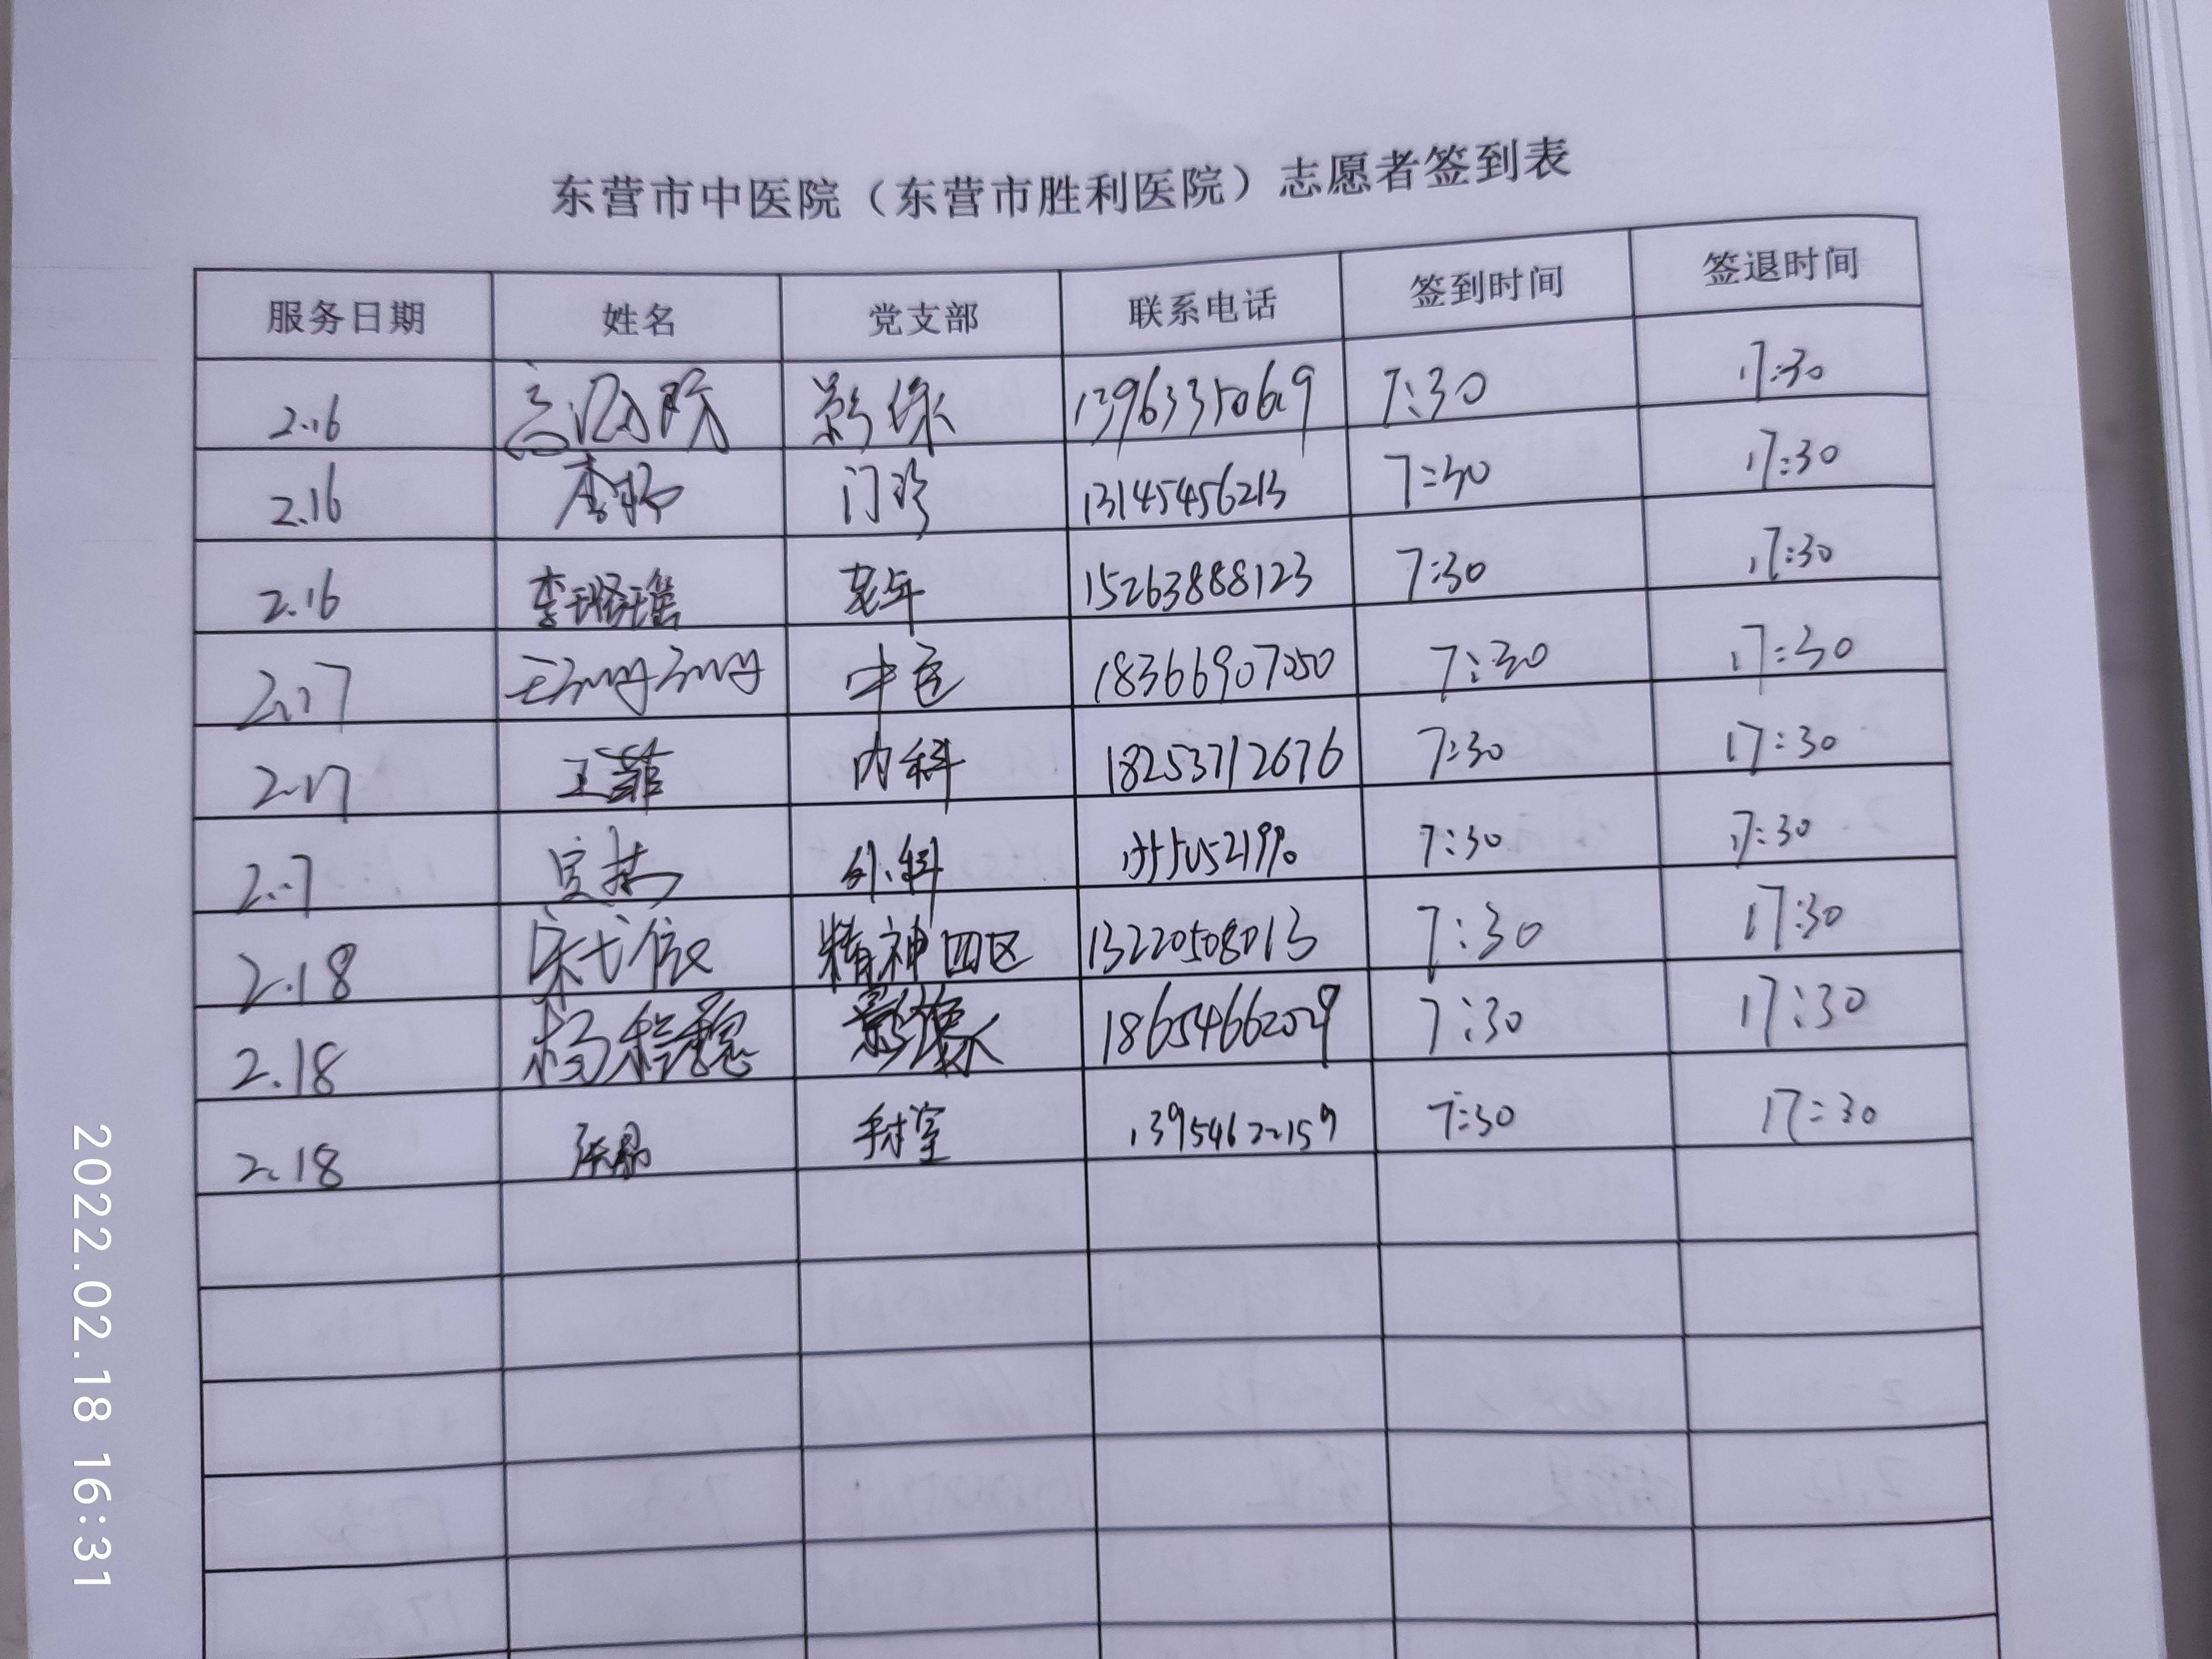 东营市中医院（东营市胜利医院）志愿者签到表
服务日期 姓名 党支部 联系电话 签到时间 签退时间
2.16 影像 13963350619 7:30 17:30
2.16 李娜 门诊 13145456213 7:30 17:30
2.16 李璐瑶 老年 15263888123 7:30 17:30
2.17 王娜娜 中医 18366907050 7:30 17:30
2.17 王菲 内科 18253712676 7:30 17:30
2.17 外科 7:30 17:30
2.18 精神四区 13220508013 7:30 17:30
2.18 杨 影像 18654662029 7:30 17:30
2.18 张晶 手术室 13954622159 7:30 17:30
2022.02.18 16:31